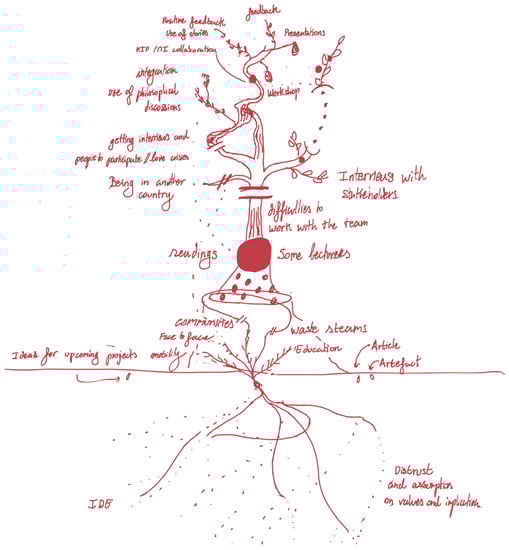 feedback
Positive feedback
Use of stories
Presentations
KIP / ITI collaboration
integration
use of philosophical
discussions
Workshop
getting interviews and
people to participate / love crises
Being in another
country
Interviews with
stakeholders
difficulties to
work with the team
readings
Some lecturers
Communities
Face to face
waste steams
Ideas for upcoming projects
mobility
Education
Article
Artefact
IDE
Distrust
and assumption
on values and implication